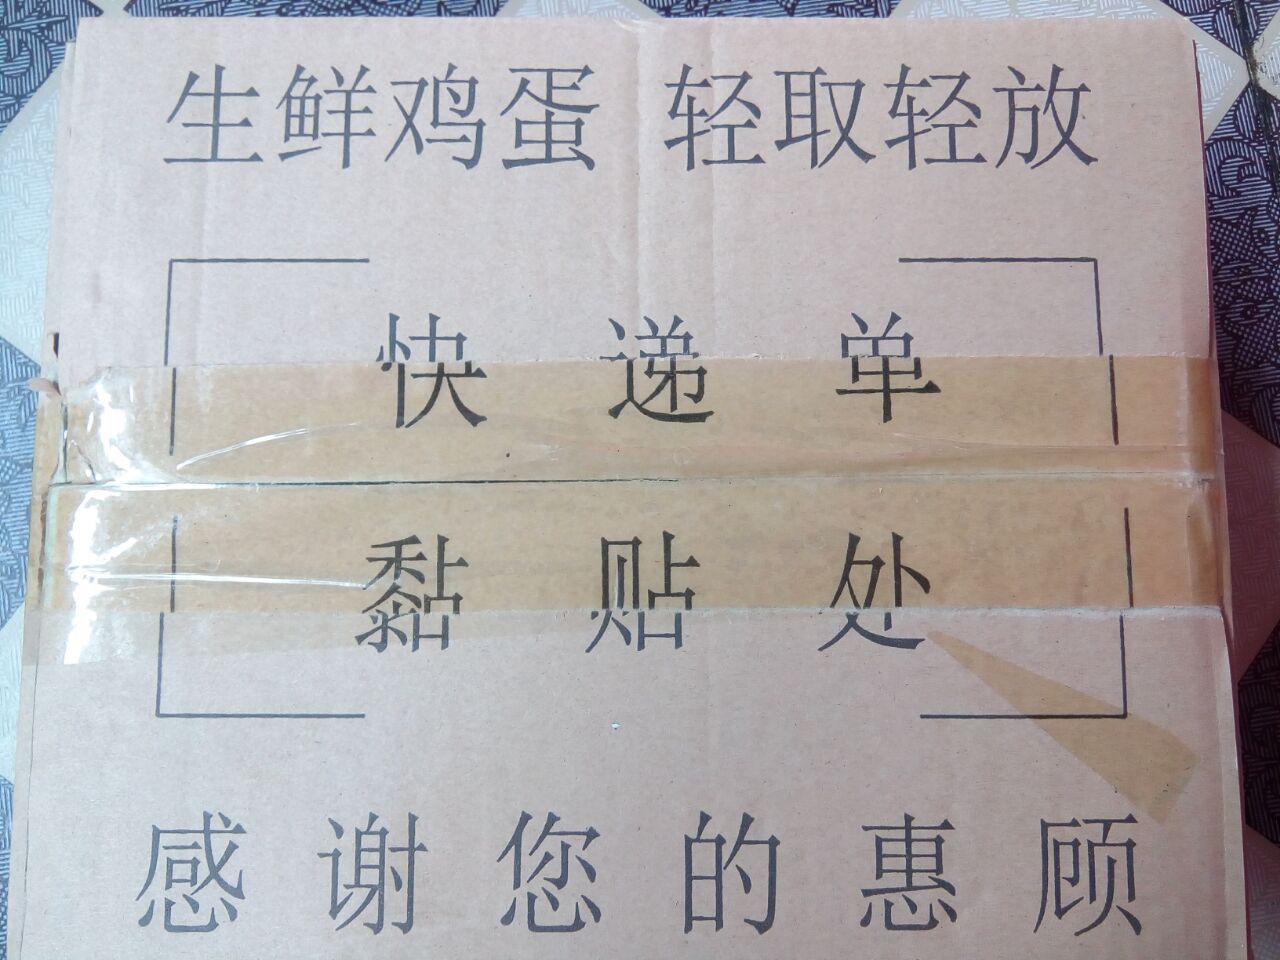 生鲜鸡蛋 轻取轻放
快递单
黏贴处
感谢您的惠顾